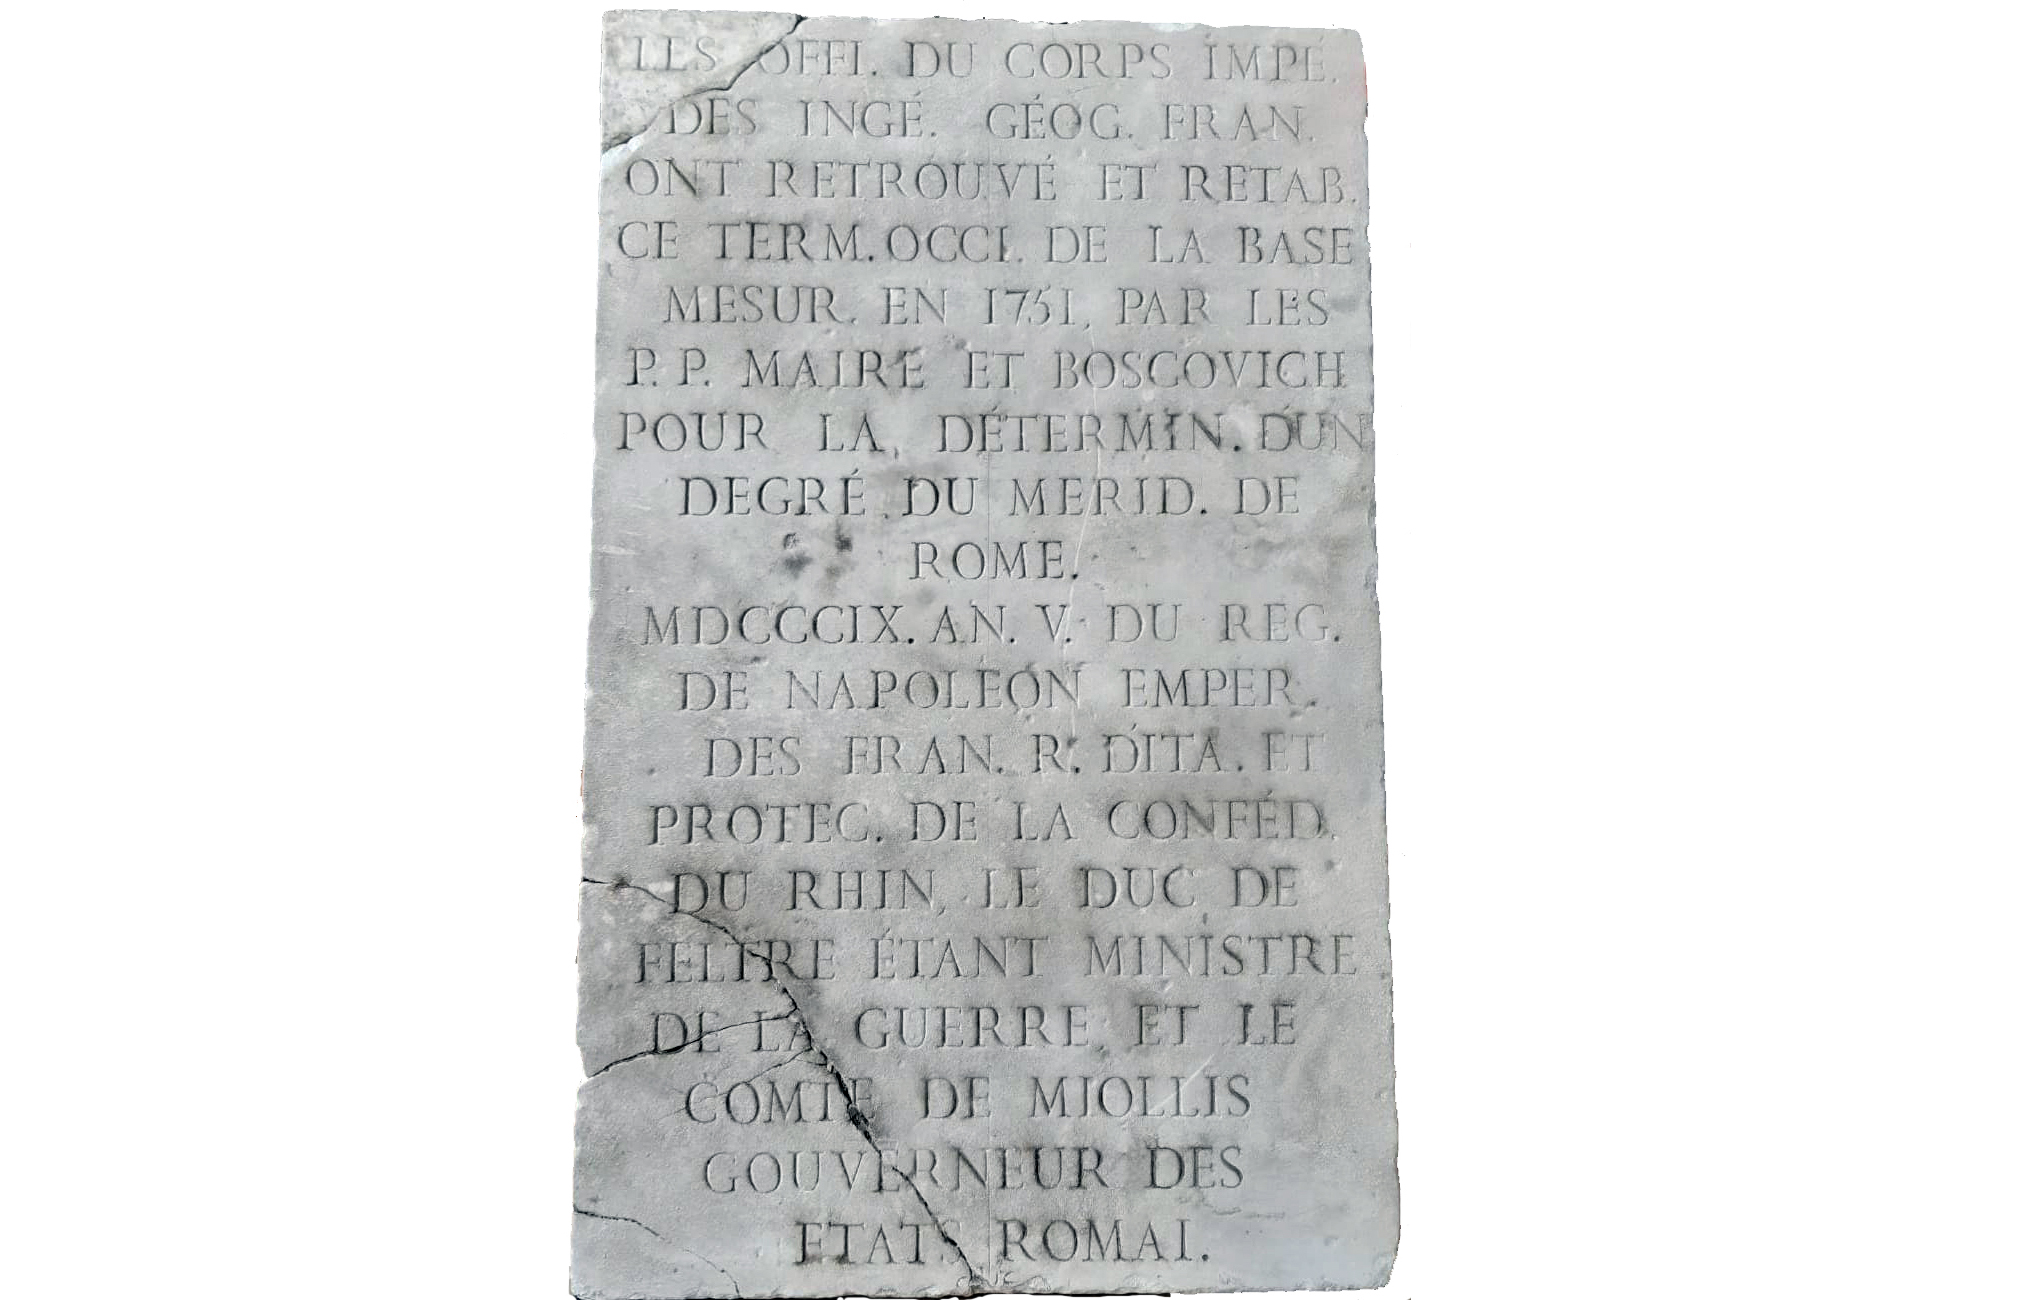 LES OFFI. DU CORPS IMPÉ.
DES INGÉ. GÉOG. FRAN.
ONT RETROUVÉ ET RETAB.
CE TERM. OCCI. DE LA BASE
MESUR. EN 1751, PAR LES
P. P. MAIRE ET BOSCOVICH
POUR LA, DÉTERMIN. D'UN
DEGRÉ DU MERID. DE
ROME.
MDCCCIX. AN. V. DU REG.
DE NAPOLEON EMPER.
DES FRAN. R. D'ITA. ET
PROTEC. DE LA CONFÉD.
DU RHIN, LE DUC DE
FELTRE ÉTANT MINISTRE
DE LA GUERRE, ET LE
COMTE DE MIOLLIS
GOUVERNEUR DES
ETATS ROMAI.